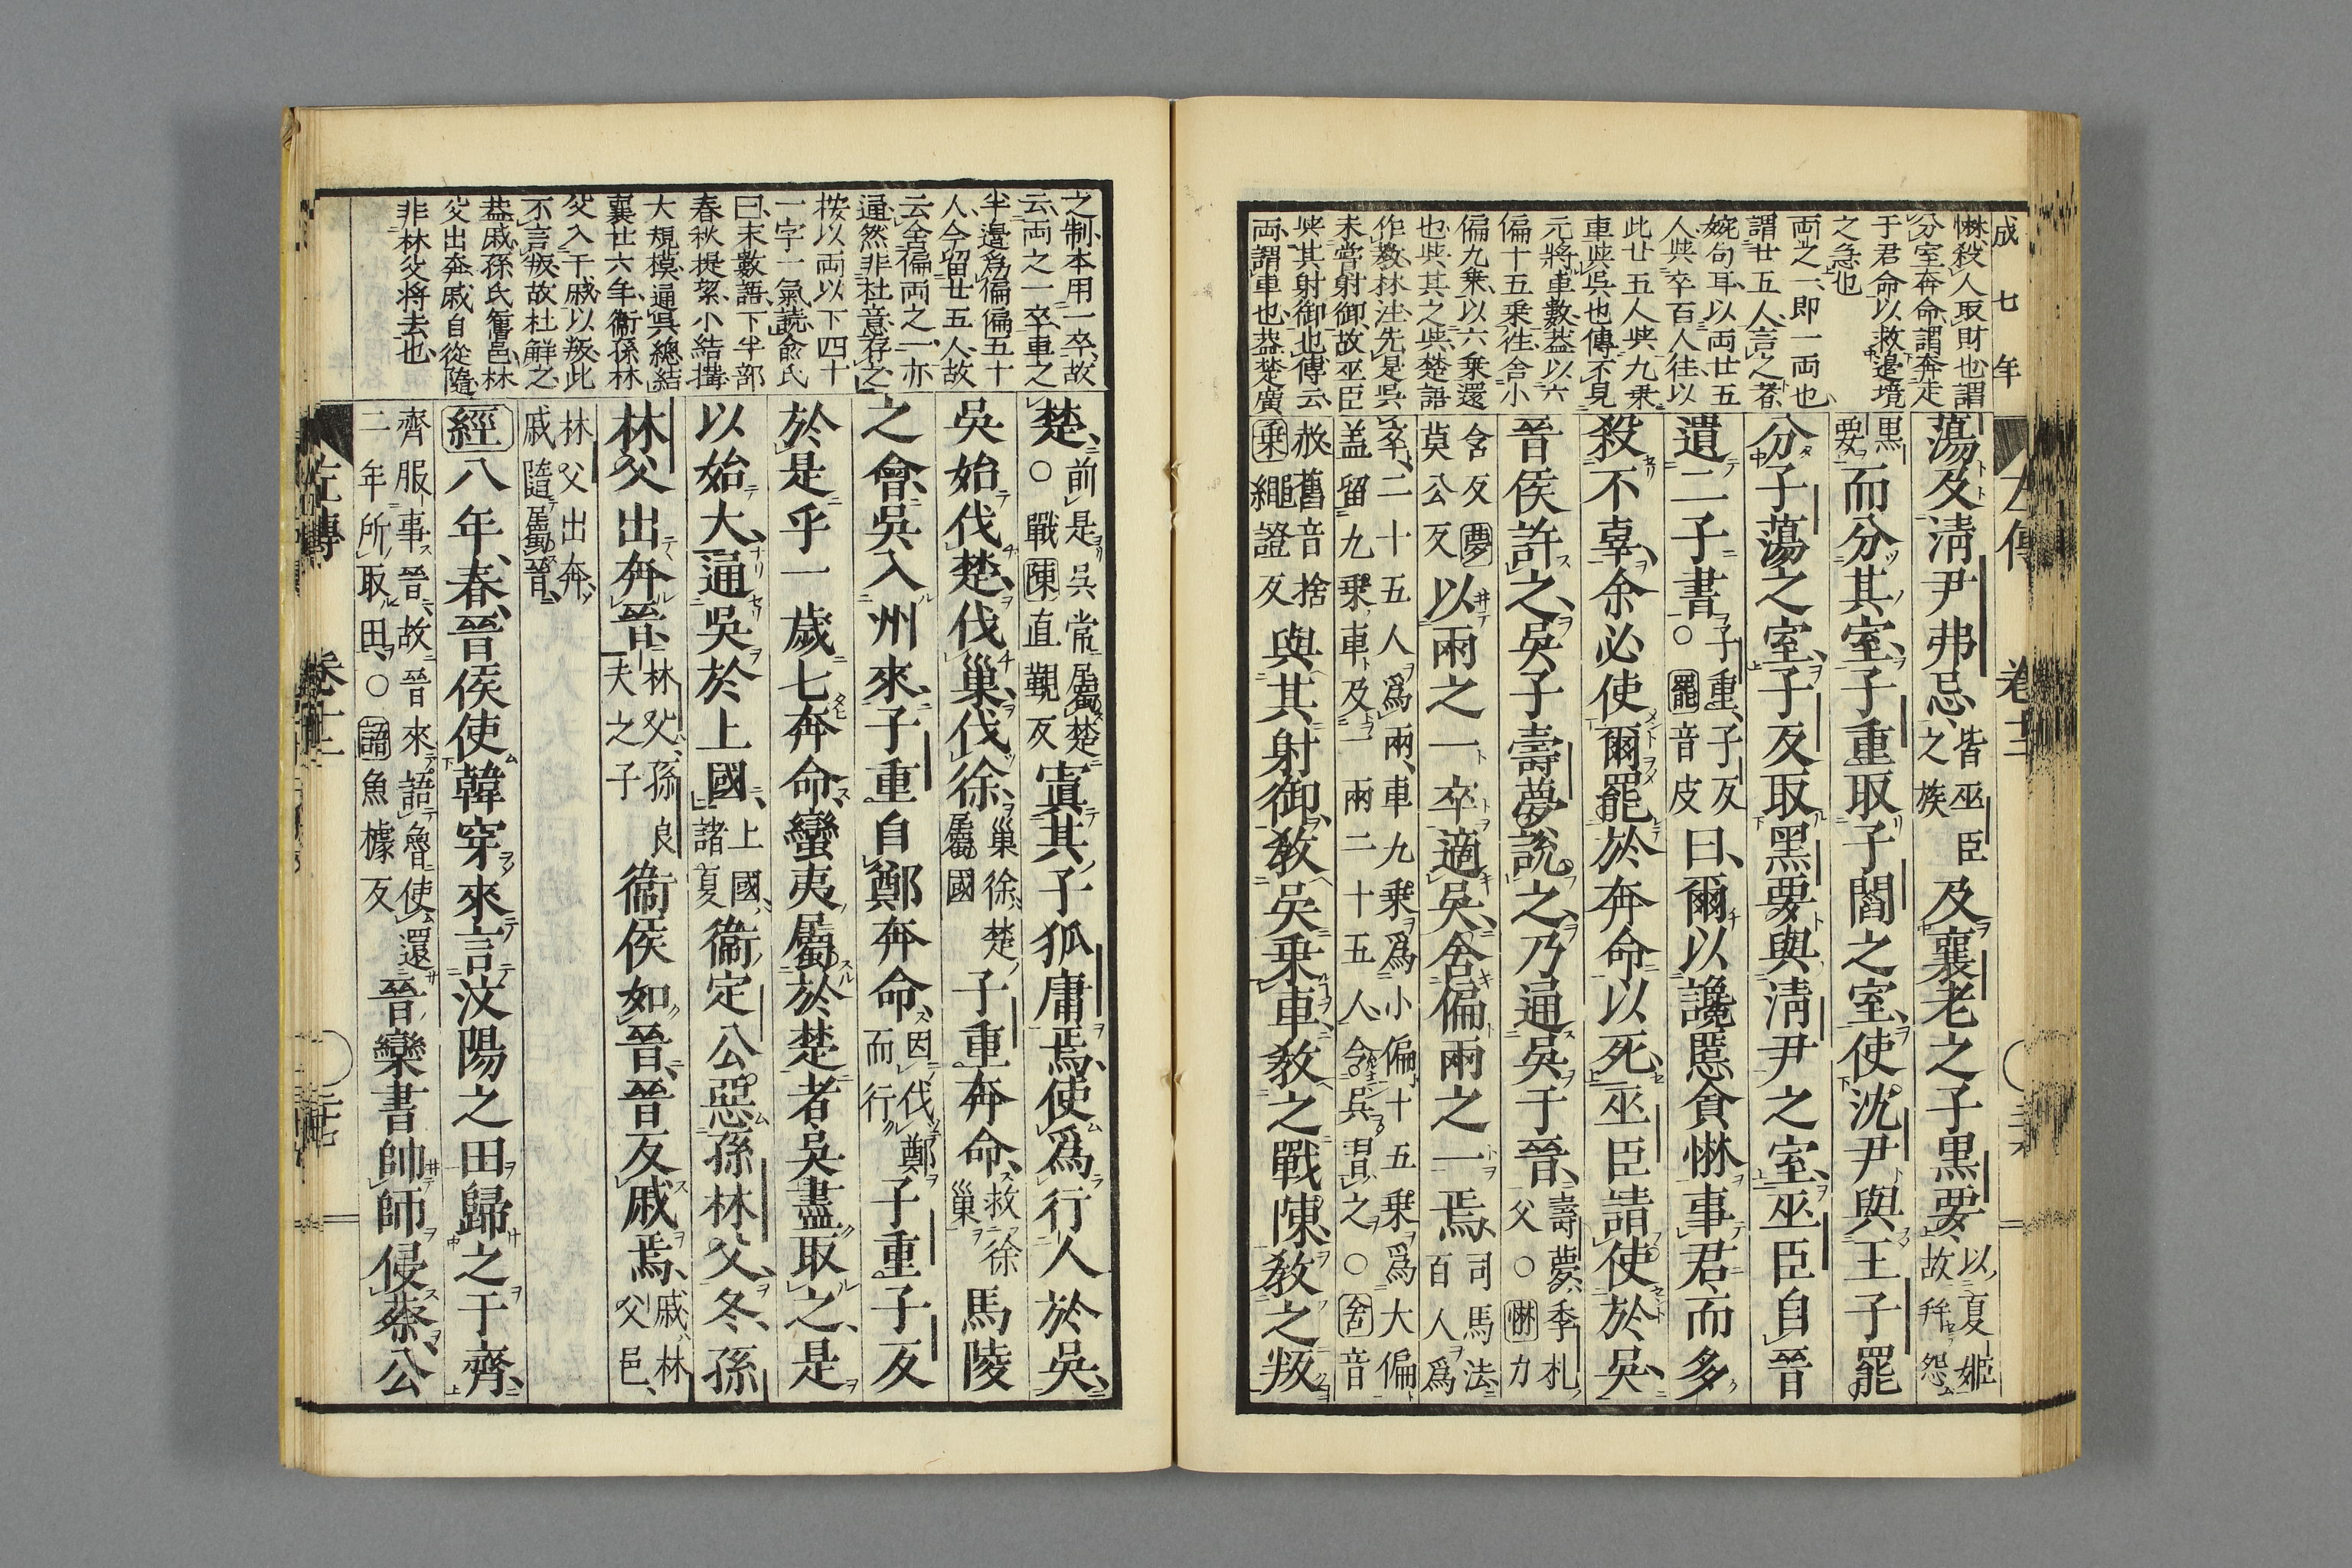 成七年
惏殺人取財也謂
分室奔命謂奔走
于君命以救邊境
之急也
兩之一即一兩也
謂廿五人言之者
婉句耳以兩廿五
人與卒百人往以
此廿五人與九乘
車與吳也傳不見
元將車數蓋以六
偏十五乘往舍小
偏九乘以六乘還
也與其之與楚語
作教林注先是吳
未嘗射御故巫臣
與其射御也傳云
兩謂車也蓋楚廣
蕩及淸尹弗忌皆巫臣之族及襄老之子黑要以夏姬故幷怨
黑要而分其室子重取子閻之室使沈尹與王子罷
分子蕩之室子反取黑要與淸尹之室巫臣自晉
遺二子書子重子反○罷音皮曰爾以讒慝貪惏事君而多
殺不辜余必使爾罷於奔命以死巫臣請使於吳
晉侯許之吳子壽夢說之乃通吳于晉壽夢季札父○惏力
含反夢莫公反以兩之一卒適吳舍偏兩之一焉司馬法百人爲
卒二十五人爲兩車九乘爲小偏十五乘爲大偏蓋留九乘車及一兩二十五人令吳習之○舍音
赦舊音捨乘繩證反與其射御敎吳乘車敎之戰陳敎之叛
左傳 卷十二
之制本用一卒故
云兩之一卒車之
半邊爲偏偏五十
人今留廿五人故
云舍偏兩之一亦
通然非杜意存之
按以兩以下四十
一字一氣讀兪氏
曰末數語下半部
春秋提絜小結搆
大規模通吳總結
襄廿六年衞孫林
父入于戚以叛此
不言叛故杜解之
蓋戚孫氏舊邑林
父出奔戚自從隨
非林父將去也
楚前是吳常屬楚○戰陳直觀反寘其子狐庸焉使爲行人於吳
吳始伐楚伐巢伐徐巢徐楚屬國子重奔命救徐巢馬陵
之會吳入州來子重自鄭奔命因伐鄭而行子重子反
於是乎一歲七奔命蠻夷屬於楚者吳盡取之是
以始大通吳於上國上國諸夏衞定公惡孫林父冬孫
林父出奔晉林父孫良夫之子衞侯如晉晉反戚焉戚林父邑
林父出奔戚隨屬晉
經八年春晉侯使韓穿來言汶陽之田歸之于齊
齊服事晉故晉來語魯使還二年所取田○語魚據反晉欒書帥師侵蔡公
左傳 卷十二